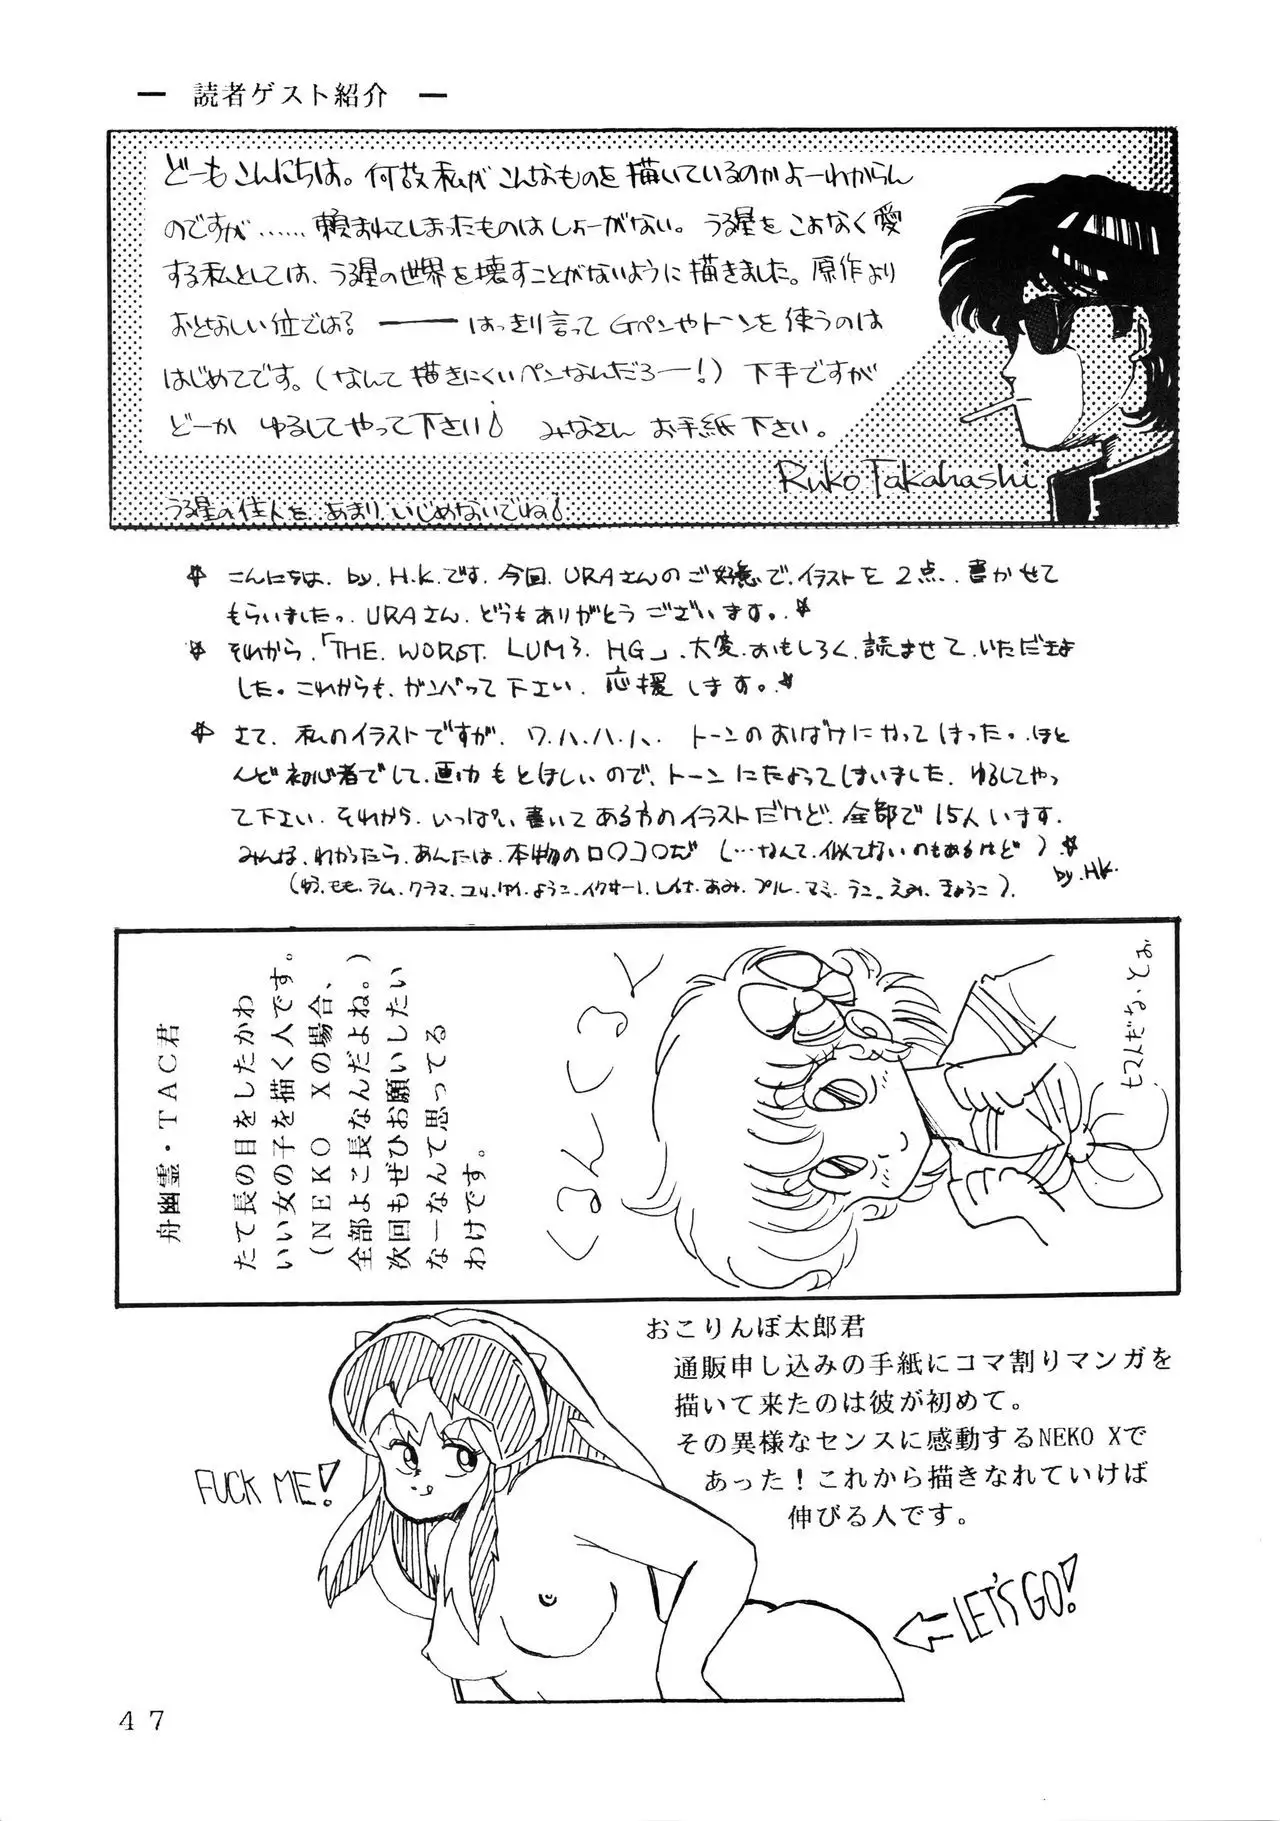 ー 読者ゲスト紹介 ー
どーもこんにちは。何故私がこんなものを描いているのかよーわからん
のですが……頼まれてしまったものはしょーがない。うる星をこよなく愛
する私としては、うる星の世界を壊すことがないように描きました。原作より
おとなしい位では？ ――はっきり言ってGペンやトーンを使うのは
はじめてです。(なんて描きにくいペンなんだろー!) 下手ですが
どーか ゆるしてやって下さい! みなさん お手紙下さい。
Ruko Takahashi
うる星の住人を あまり いじめないでね!
☆ こんにちは. by. H.K.です. 今回. URAさんのご好意で. イラストを 2点. 書かせて
もらいましたっ. URAさん. どうもありがとう ございます。. ☆
☆ それから.「THE. WORST. LUM3. HG」. 大変. おもしろく. 読ませて. いただきま
した。これからも. ガンバって下さい. 応援 します。☆
☆ さて. 私のイラストですが. ワ.ハ.ハ.ハ. トーンのおばけにやってしまった。. ほと
んど初心者でして. 画力もとぼしいので. トーンにたよってしまいました. ゆるしてやっ
て下さい. それから. いっぱい書いてある方のイラストだけど. 全部で 15人います.
みんな. わかったら. あんたは. 本物のロ○コ○だ (…なんて. 似てないのもあるけど) ☆
by. HK.
モモ. ラム. クラマ. ようこ. あみ. マミ. えみ. きょうこ).
舟幽霊・TAC君
たて長の目をしたかわ
いい女の子を描く人です。
(NEKO Xの場合、
全部よこ長なんだよね。)
次回もぜひお願いしたい
なーなんて思ってる
わけです。
くるんくるん
ヒマんだな・とお
おこりんぼ太郎君
通販申し込みの手紙にコマ割りマンガを
描いて来たのは彼が初めて。
その異様なセンスに感動するNEKO Xで
あった！これから描きなれていけば
伸びる人です。
FUCK ME!
LET'S GO!
47